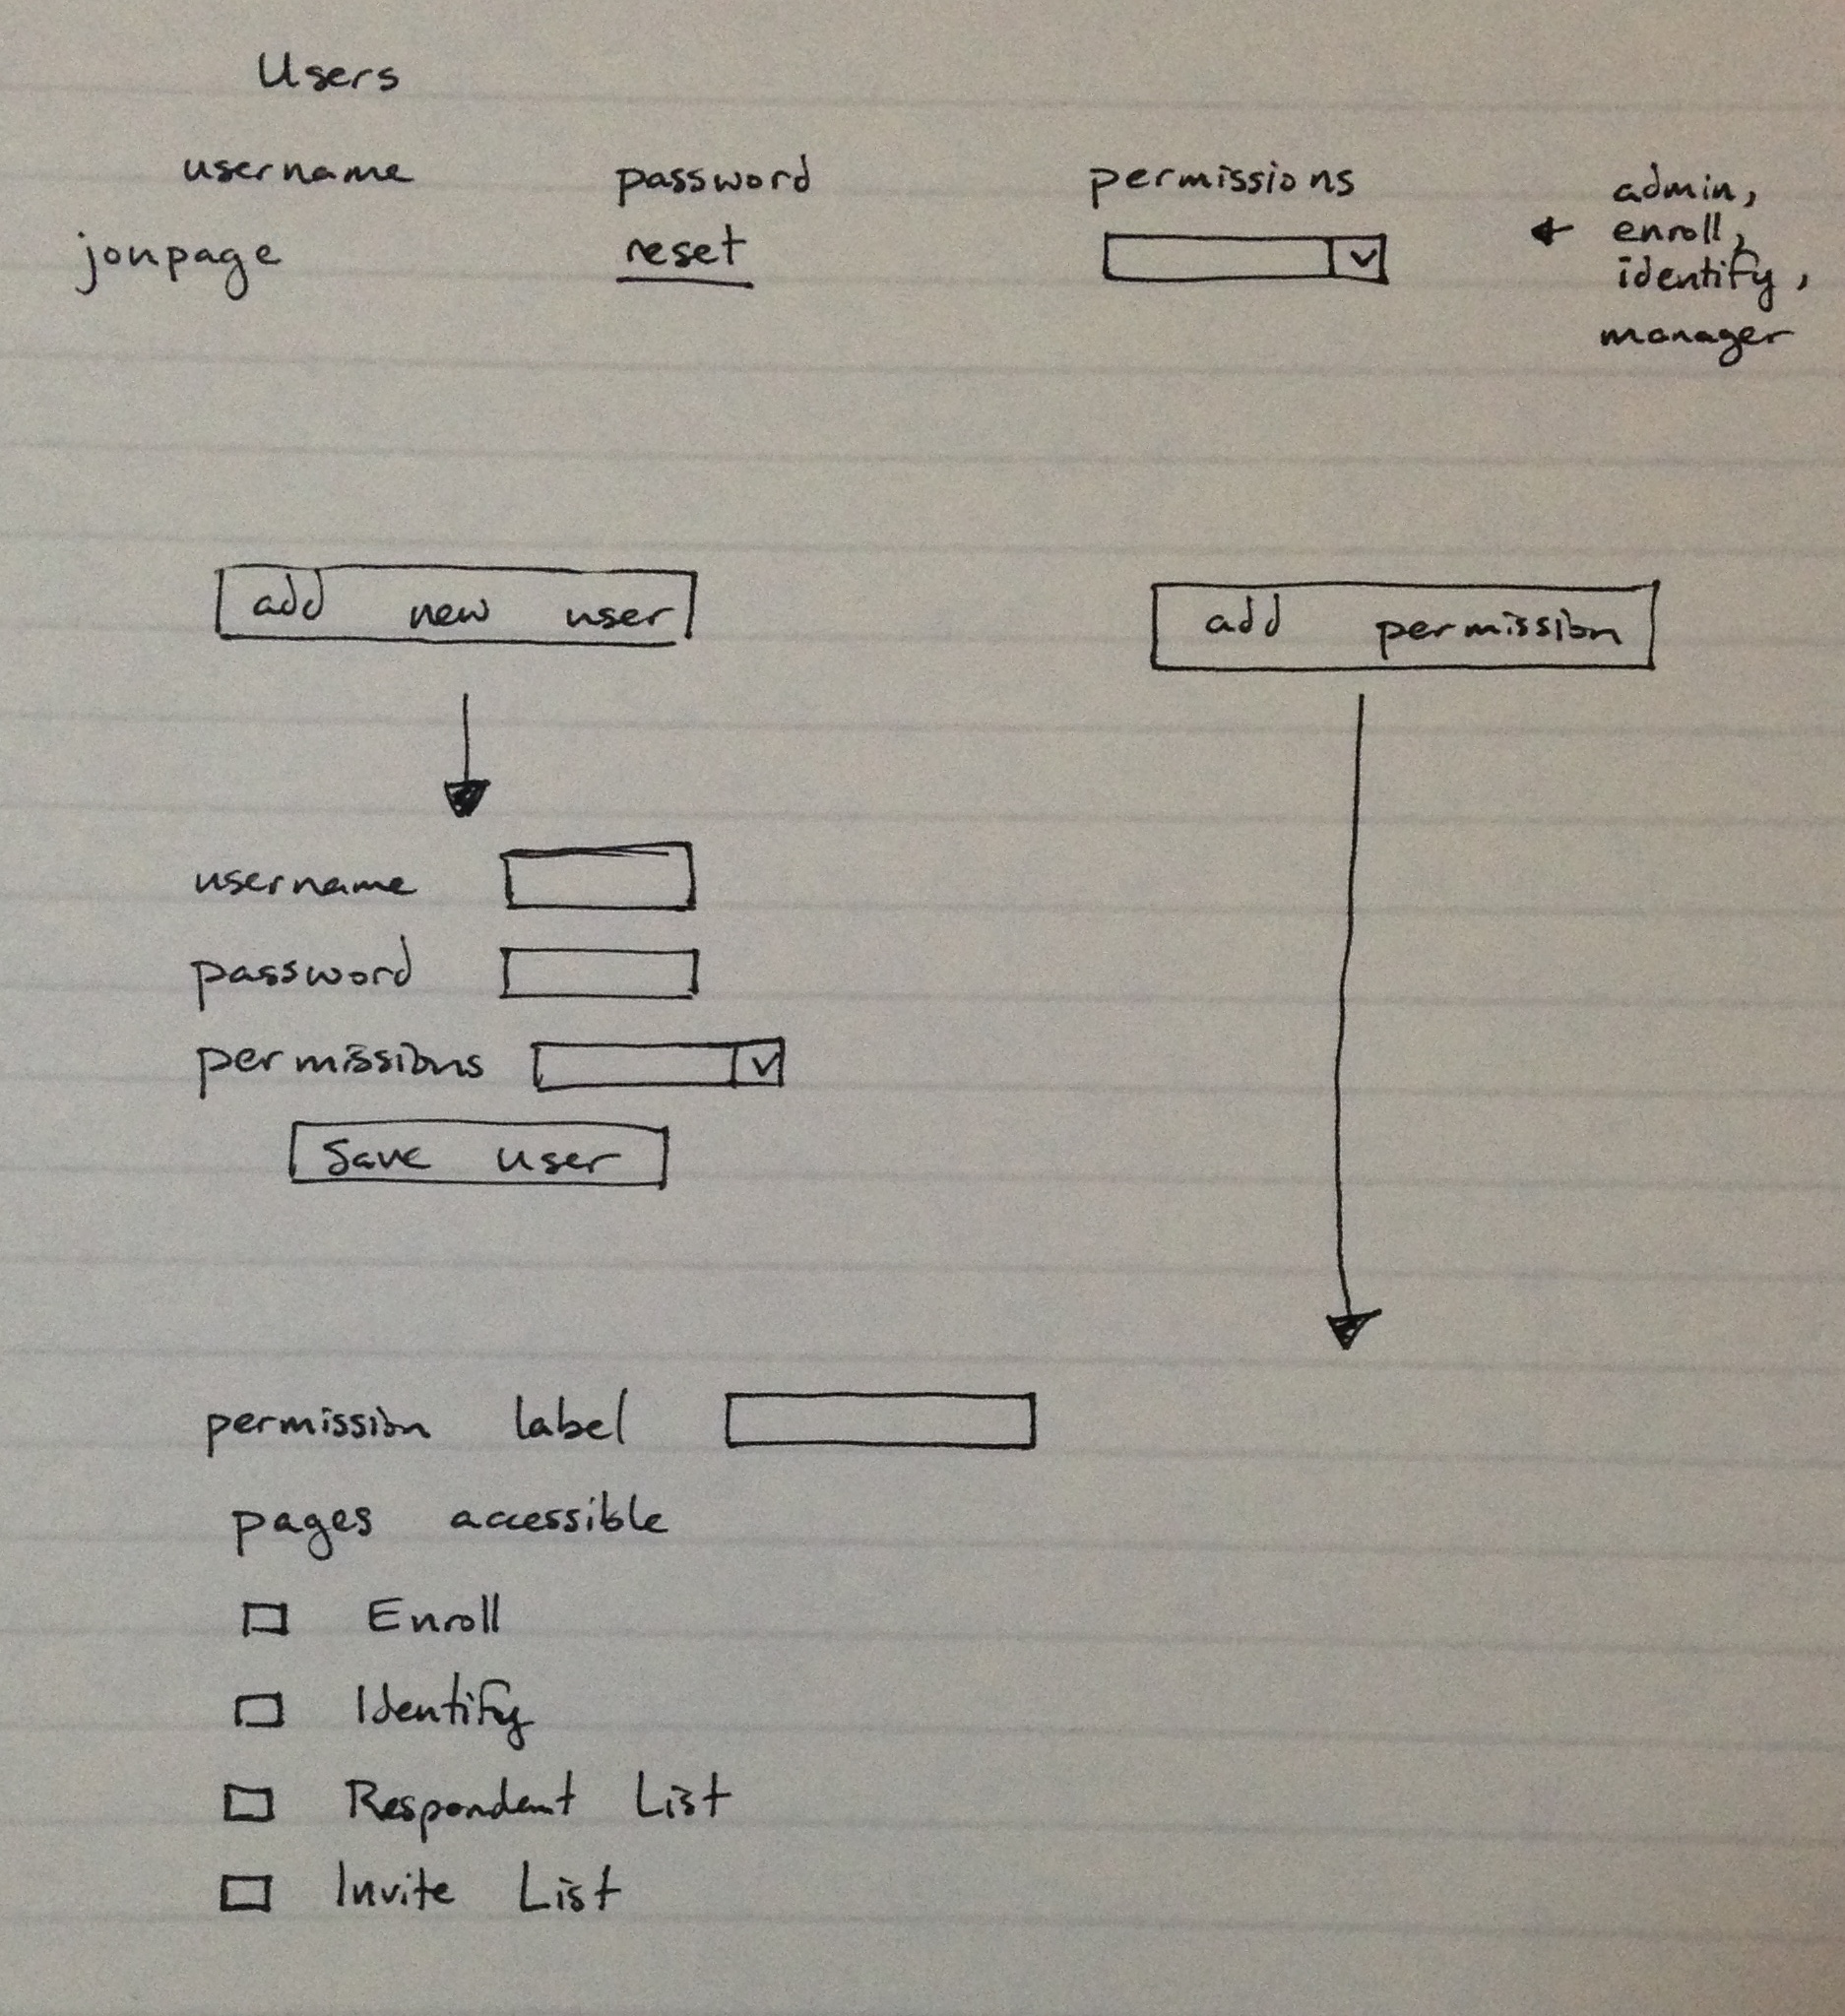 Users
username password permissions
jonpage reset
admin,
enroll,
identify,
manager
add new user
add permission
username
password
permissions
Save user
permission label
pages accessible
Enroll
Identify
Respondent List
Invite List